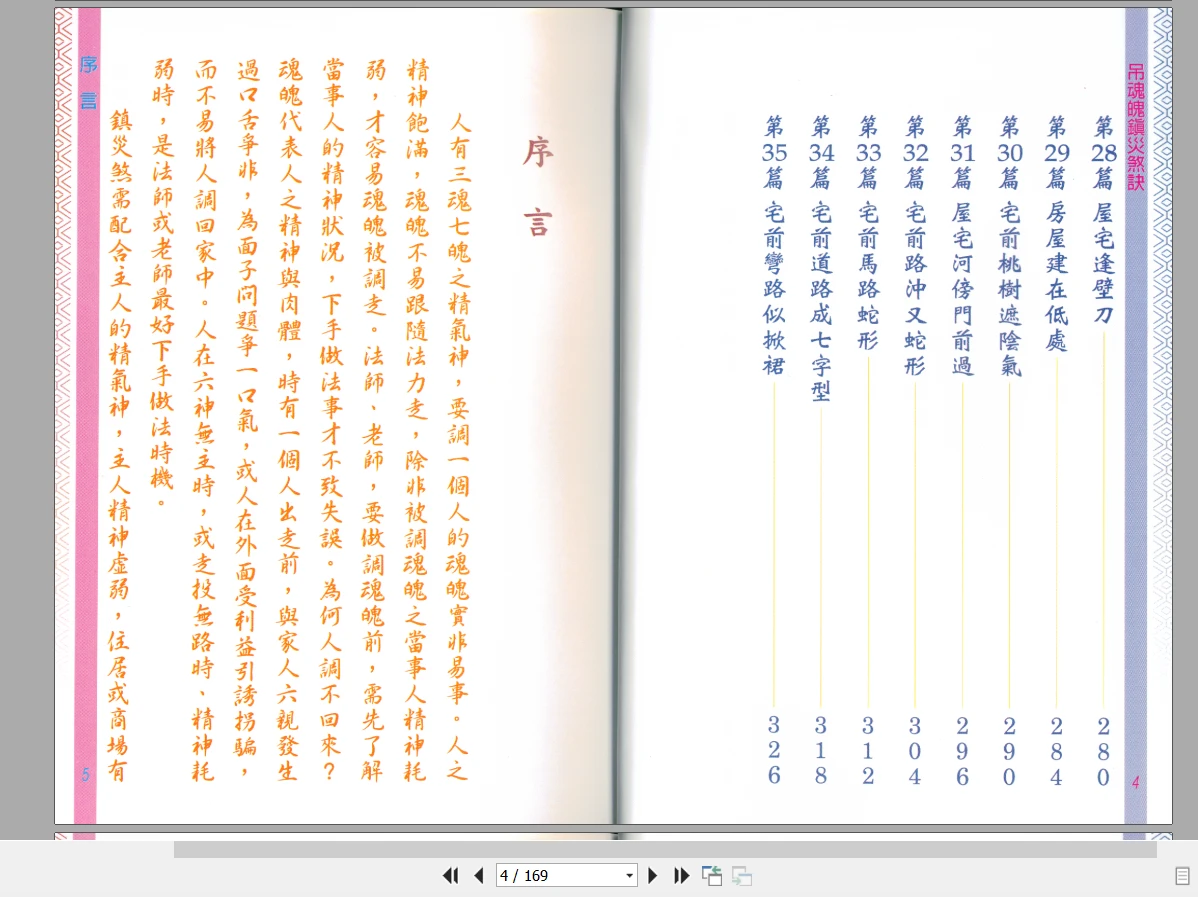 吊魂魄鎮災煞訣
第28篇 屋宅逢壁刀 280
第29篇 房屋建在低處 284
第30篇 宅前桃樹遮陰氣 290
第31篇 屋宅河傍門前過 296
第32篇 宅前路沖又蛇形 304
第33篇 宅前馬路蛇形 312
第34篇 宅前道路成七字型 318
第35篇 宅前彎路似掀裙 326
4
序言
人有三魂七魄之精氣神，要調一個人的魂魄實非易事。人之
精神飽滿，魂魄不易跟隨法力走，除非被調魂魄之當事人精神耗
弱，才容易魂魄被調走。法師、老師，要做調魂魄前，需先了解
當事人的精神狀況，下手做法事才不致失誤。為何人調不回來？
魂魄代表人之精神與肉體，時有一個人出走前，與家人六親發生
過口舌爭非，為面子問題爭一口氣，或人在外面受利益引誘拐騙，
而不易將人調回家中。人在六神無主時，或走投無路時、精神耗
弱時，是法師或老師最好下手做法時機。
鎮災煞需配合主人的精氣神，主人精神虛弱，住居或商場有
序言
5
4 / 169